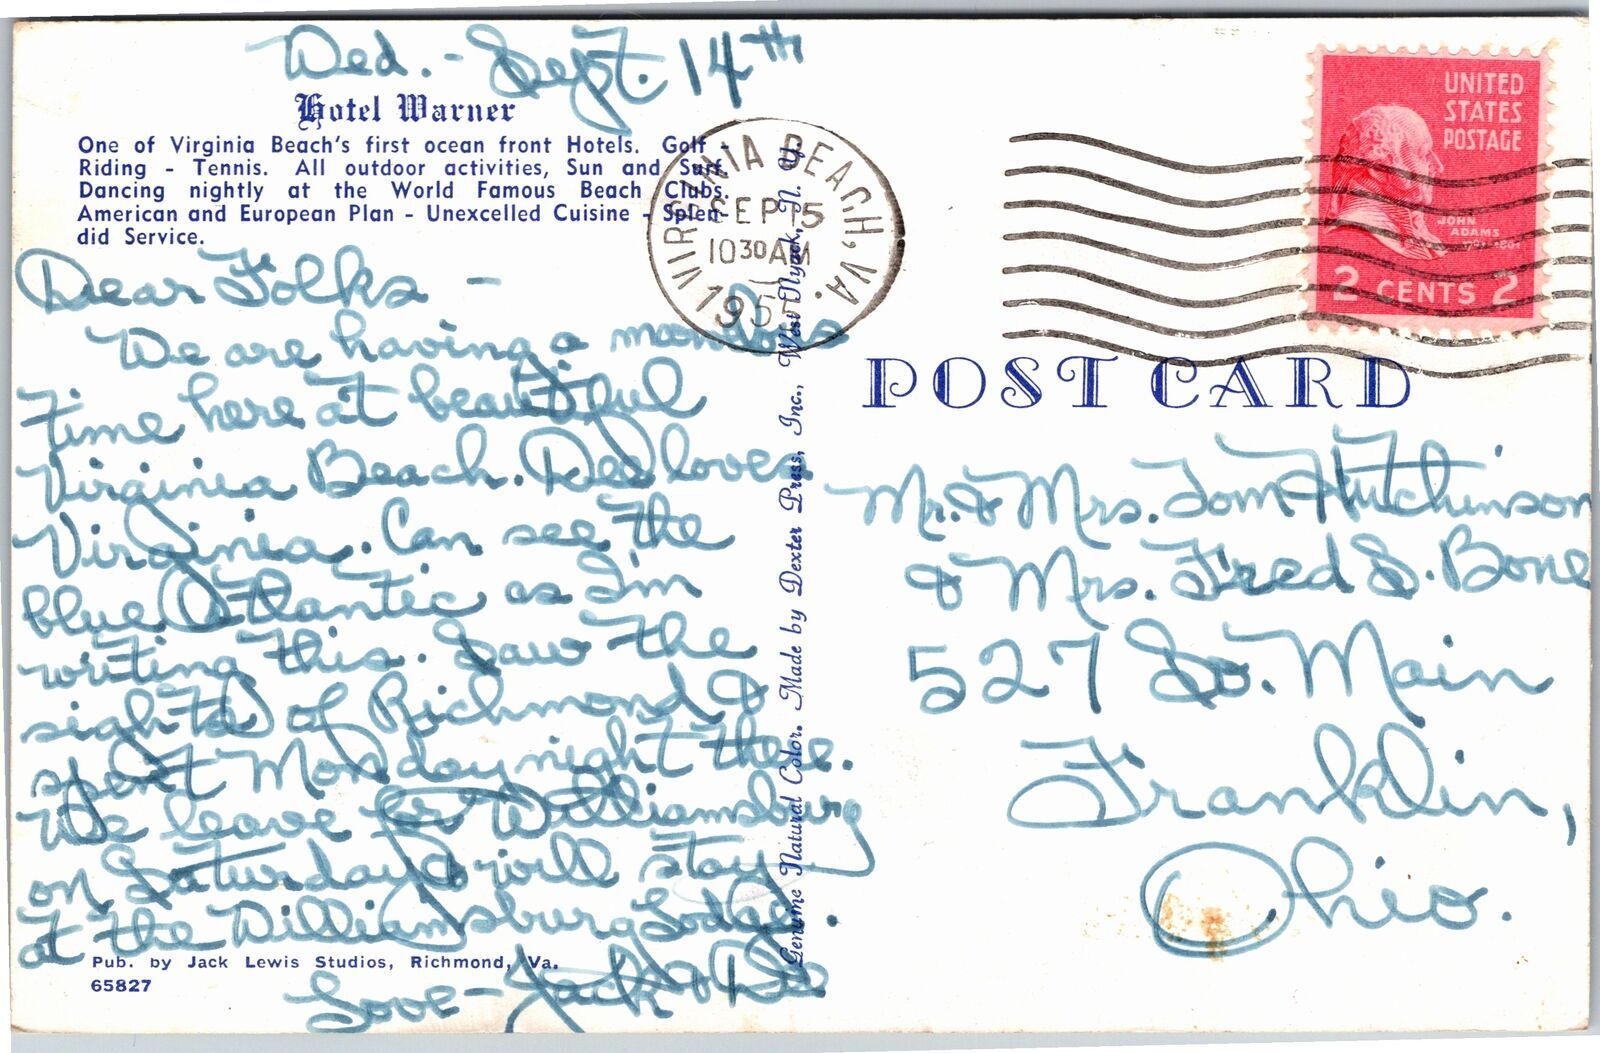 Wed. - Sept. 14th
Hotel Warner
One of Virginia Beach's first ocean front Hotels. Golf -
Riding - Tennis. All outdoor activities, Sun and Surf.
Dancing nightly at the World Famous Beach Clubs.
American and European Plan - Unexcelled Cuisine - Splen-
did Service.
Dear Folks -
We are having a marvelous
time here at beautiful
Virginia Beach. Dee loves
Virginia. Can see the
blue Atlantic as I'm
writing this. Saw the
sights of Richmond &
spent Monday night there.
We leave for Williamsburg
on Saturday & will stay
at the Williamsburg Lodge.
Love - Jack & Dee
Pub. by Jack Lewis Studios, Richmond, Va.
65827
Genuine Natural Color. Made by Dexter Press, Inc., West Nyack, N. Y.
VIRGINIA BEACH, VA.
SEP 15
10 30 AM
1955
UNITED
STATES
POSTAGE
JOHN
ADAMS
1797-1801
2 CENTS 2
POST CARD
Mr. & Mrs. Tom Hutchinson
& Mrs. Fred S. Bone
527 So. Main
Franklin,
Ohio.